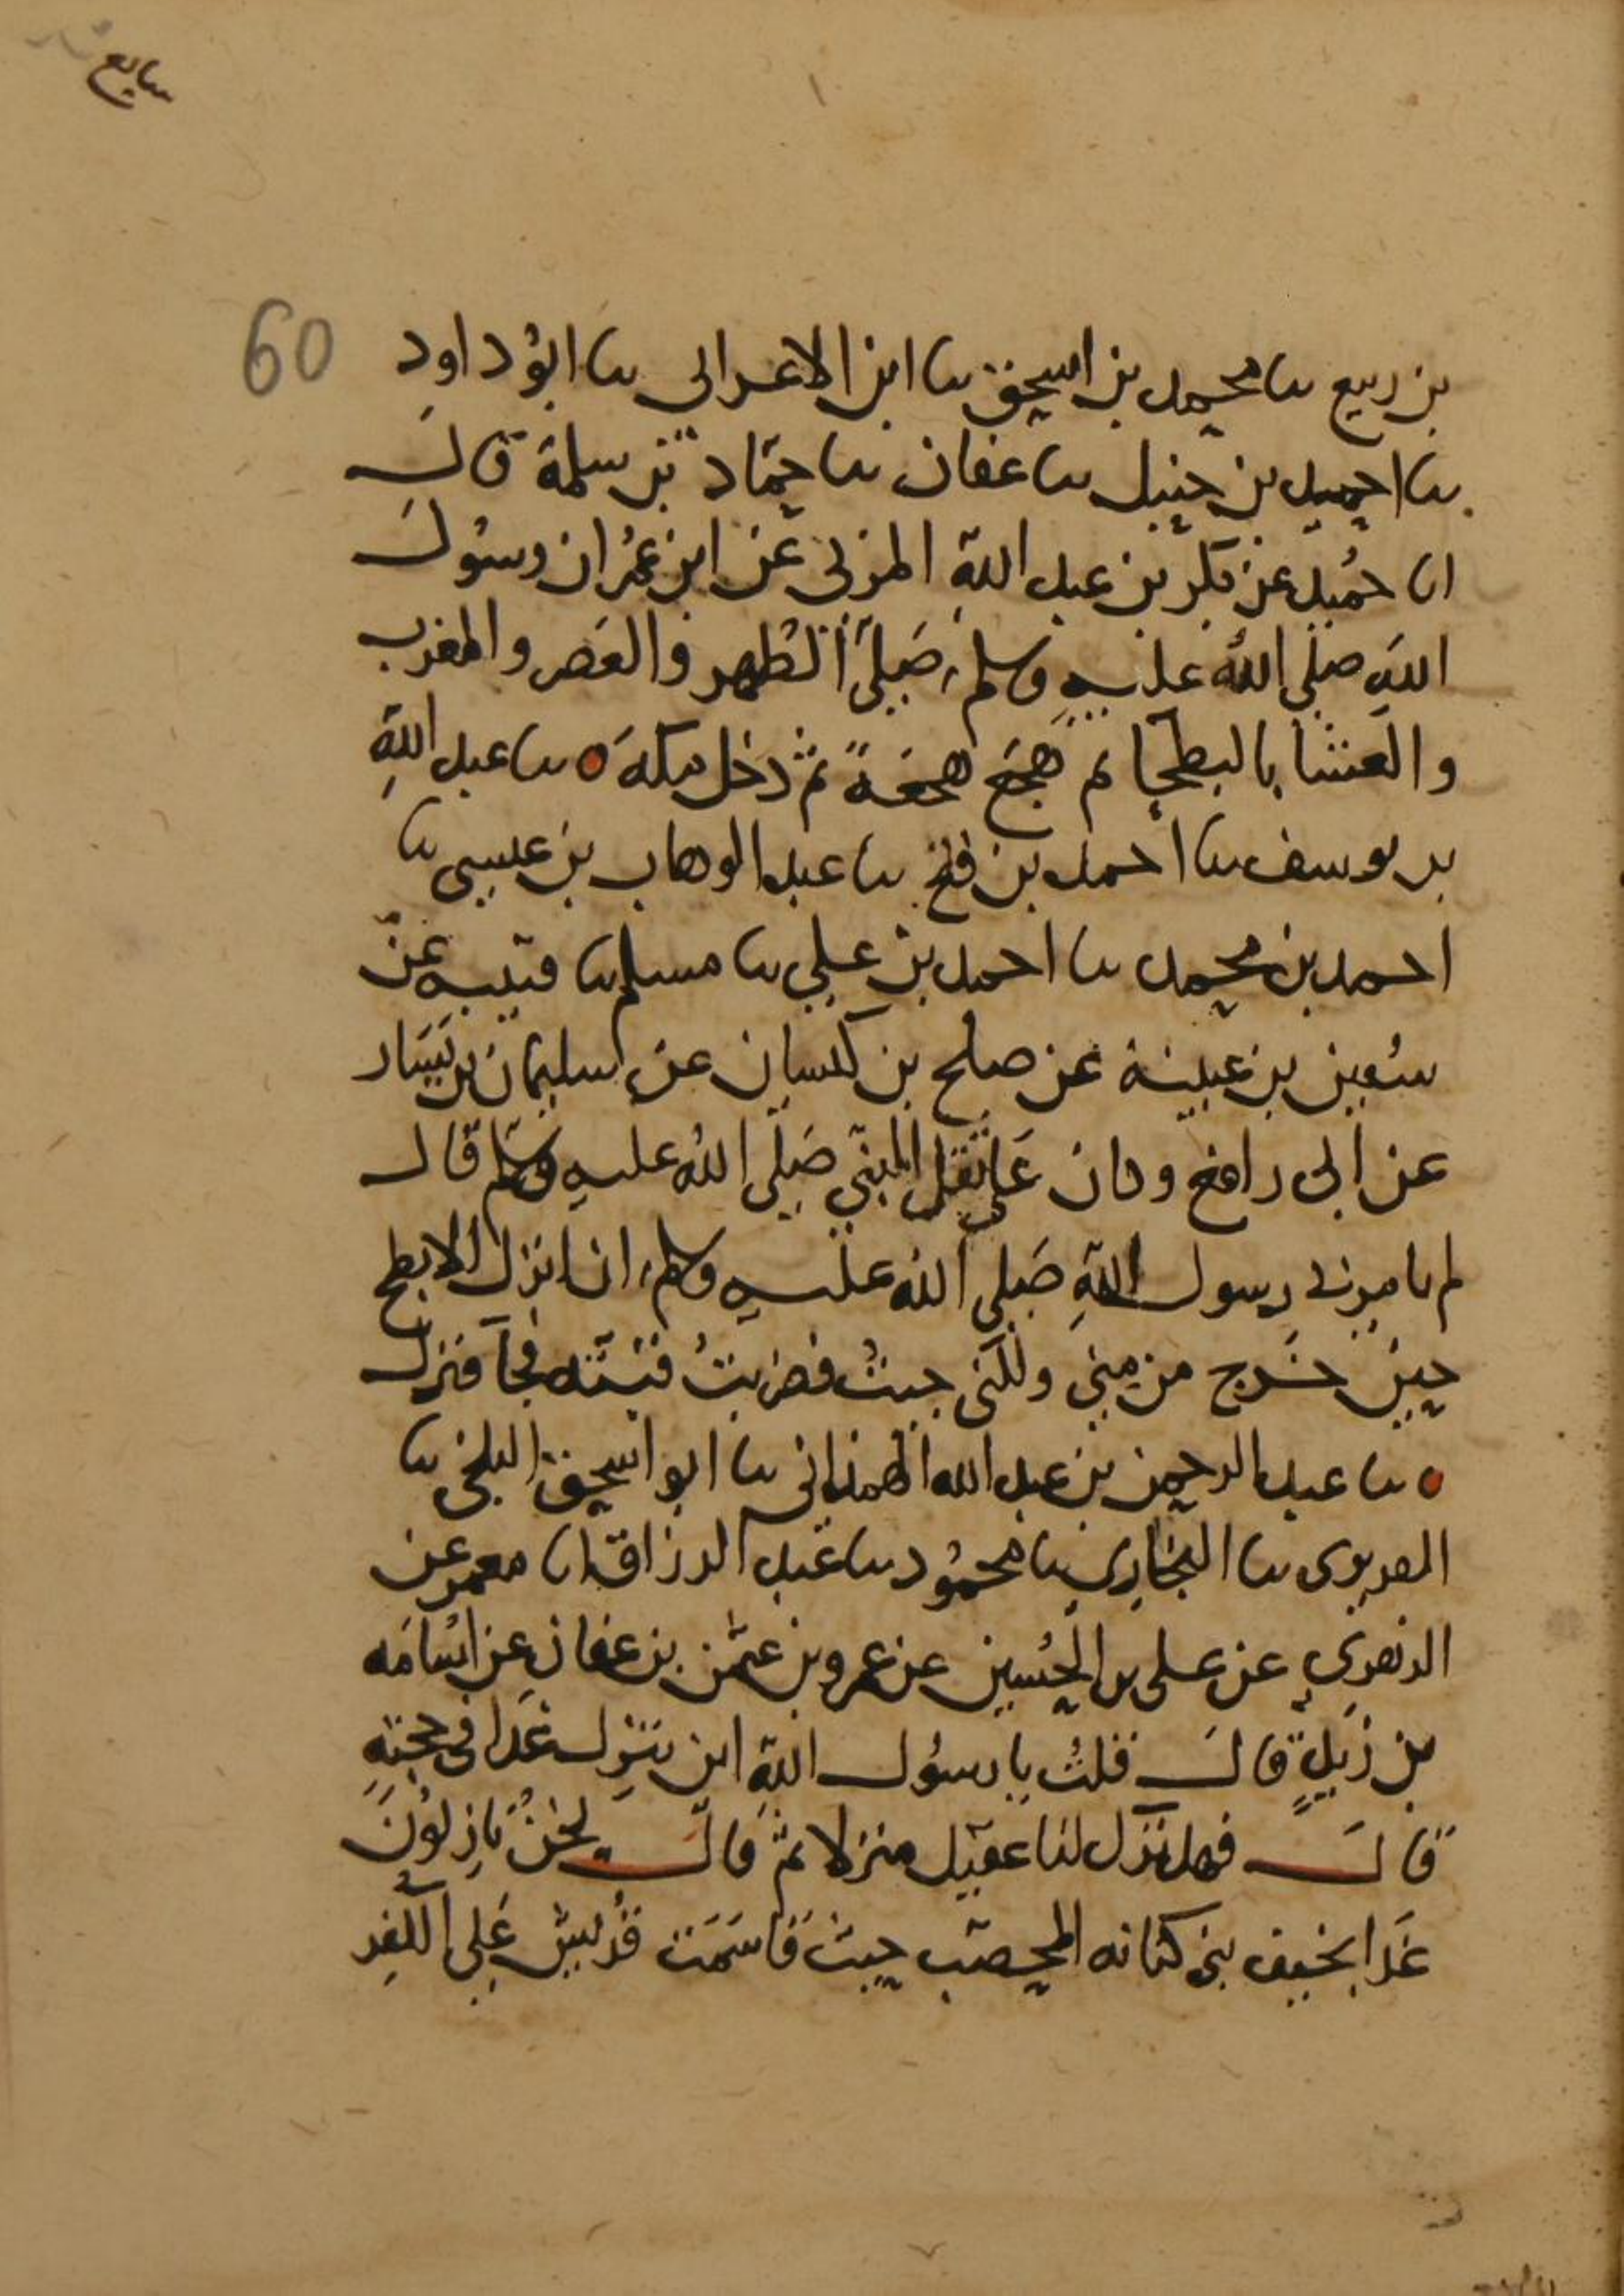 سابع
60
بن ربيع نا محمد بن اسحق نا ابن الاعرابي نا ابو داود
نا احمد بن حنبل نا عفان نا حماد بن سلمة قال
انا حميد عن بكر بن عبد الله المزني عن ابن عمر ان رسول
الله صلى الله عليه وسلم صلى الظهر والعصر والمغرب
والعشا بالبطحا ثم هجع هجعة ثم دخل مكة ه نا عبد الله
بن يوسف نا احمد بن فتح نا عبد الوهاب بن عيسى نا
احمد بن محمد نا احمد بن علي نا مسلم نا قتيبه عن
سفين بن عيينة عن صلح بن كيسان عن سليمان بن يسار
عن ابى رافع وكان على ثقل النبي صلى الله عليه وسلم قال
لم يامرني رسول الله صلى الله عليه وسلم ان انزل الابطح
حين خرج من منى ولكني جيت فضربت قبته فجا فنزل
ه نا عبد الرحمن بن عبد الله الهمذاني نا ابو اسحق البلخي نا
الفربرى نا البخاري نا محمود نا عبد الرزاق انا معمر عن
الزهري عن على بن الحسين عن عمرو بن عثمن بن عفان عن اسامه
بن زيد قال قلت يا رسول الله اين تنزل غدا في حجته
قال فهل ترك لنا عقيل منزلا ثم قال نحن نازلون
غدا بخيف بني كنانه المحصب حيث قاسمت قريش على الكفر